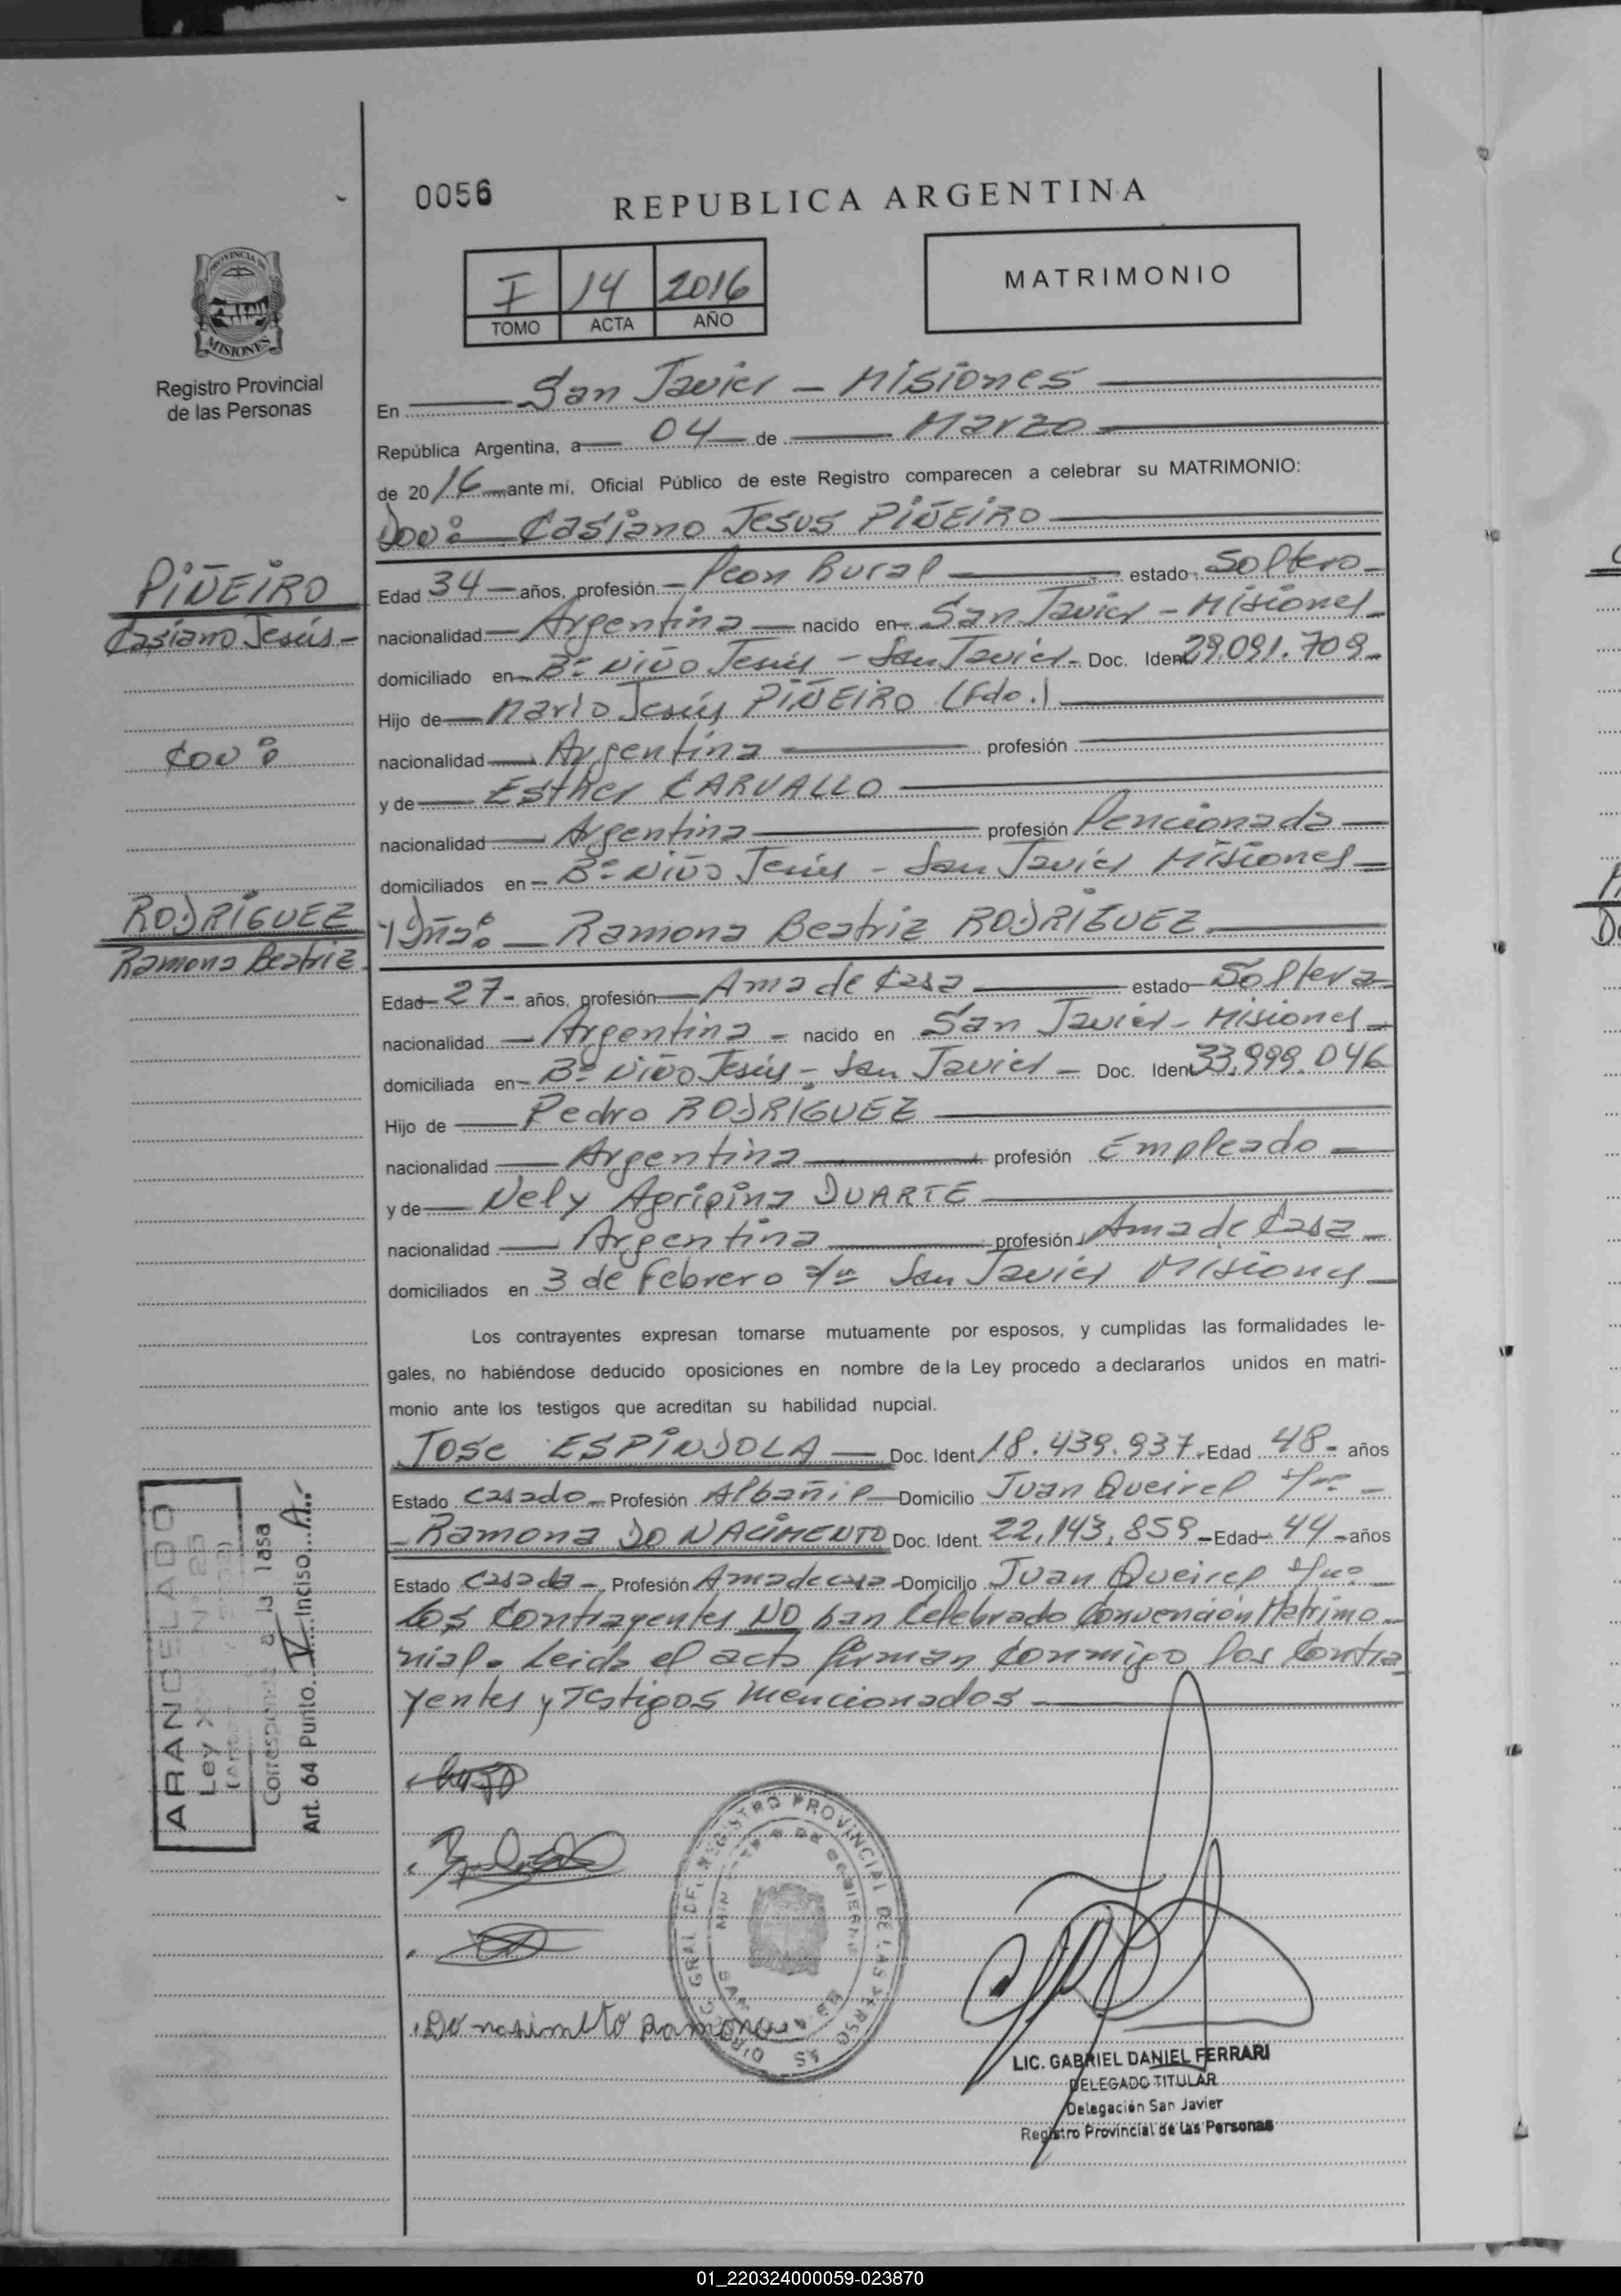 0056
REPUBLICA ARGENTINA
I 14 2016
TOMO ACTA AÑO
MATRIMONIO
PROVINCIA DE
MISIONES
Registro Provincial
de las Personas
En San Javier - Misiones
República Argentina, a 04 de Marzo
de 2016 ante mí, Oficial Público de este Registro comparecen a celebrar su MATRIMONIO:
Don: Casiano Jesus PIÑEIRO
PIÑEIRO
Casiano Jesús -
CON:
RODRIGUEZ
Ramona Beatriz
Edad 34 años, profesión Peon Rural estado Soltero
nacionalidad Argentina nacido en San Javier - Misiones
domiciliado en Bº Niño Jesús - San Javier - Doc. Ident 29.091.709
Hijo de Mario Jesús PIÑEIRO (Fdo.)
nacionalidad Argentina profesión
y de Esther CARVALLO
nacionalidad Argentina profesión Pencionada
domiciliados en Bº Niño Jesús - San Javier Misiones
Y Dña: Ramona Beatriz RODRIGUEZ
Edad 27 años, profesión Ama de Casa estado Soltera
nacionalidad Argentina nacido en San Javier - Misiones
domiciliada en Bº Niño Jesús - San Javier - Doc. Ident 33.999.046
Hijo de Pedro RODRIGUEZ
nacionalidad Argentina profesión Empleado
y de Nely Agripina DUARTE
nacionalidad Argentina profesión Ama de Casa
domiciliados en 3 de Febrero s/nº San Javier Misiones
Los contrayentes expresan tomarse mutuamente por esposos, y cumplidas las formalidades le-
gales, no habiéndose deducido oposiciones en nombre de la Ley procedo a declararlos unidos en matri-
monio ante los testigos que acreditan su habilidad nupcial.
Jose ESPINDOLA Doc. Ident 18.439.937 Edad 48 años
Estado Casado Profesión Albañil Domicilio Juan Queirel s/nº
Ramona DO NACIMENTO Doc. Ident. 22.143.859 Edad 44 años
Estado Casada Profesión Ama de casa Domicilio Juan Queirel s/nº
Los Contrayentes NO han Celebrado Convención Matrimo-
nial. Leida el acta firman Conmigo los Contra
yentes y Testigos mencionados
ARANCELADO
Ley X
Corresponde a la Tasa
Art. 64 Punto V Inciso A.
DIREC. GRAL. DEL REGISTRO PROVINCIAL DE LAS PERSONAS
Do nasimeto Ramona
LIC. GABRIEL DANIEL FERRARI
DELEGADO TITULAR
Delegación San Javier
Registro Provincial de las Personas
01_220324000059-023870